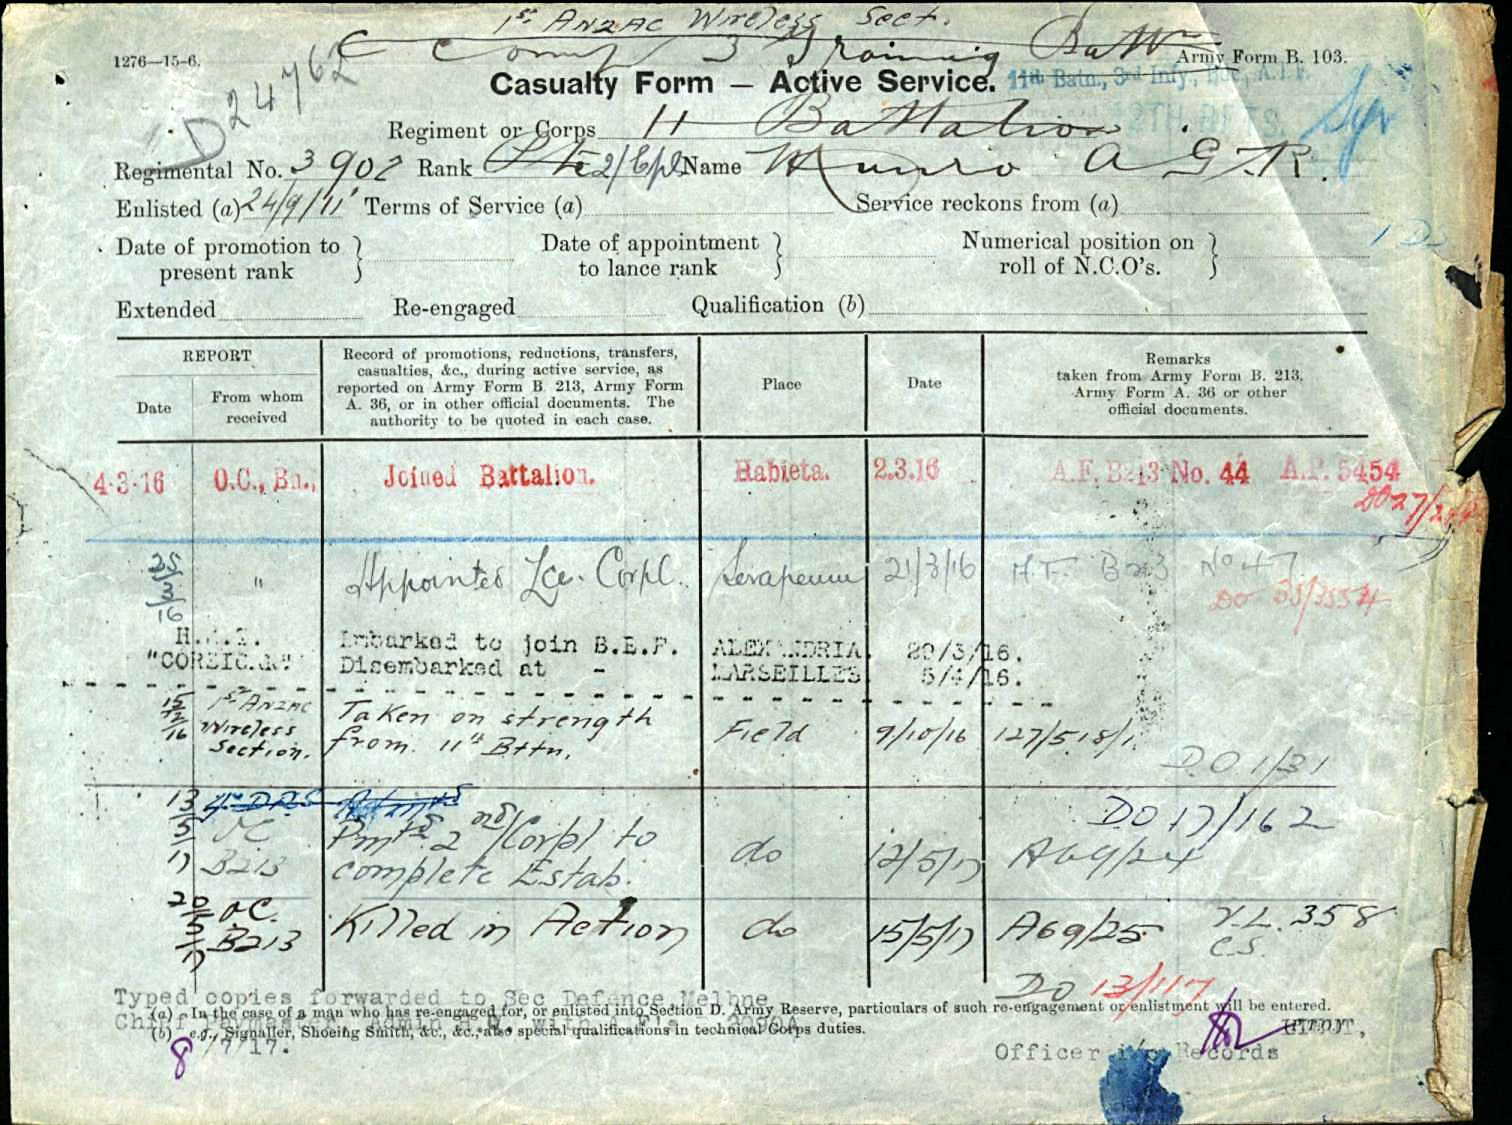 1st ANZAC Wireless Sect.
C Comp 3 Training Battn
1276—15-6.
Army Form B. 103.
D 24762
Casualty Form — Active Service.
11th Batn., 3rd Infy. Bde., A.I.F.
Regiment or Corps 11 Battalion
Regimental No. 3902 Rank Pte 2/Cpl Name Munro A G R.
Enlisted (a) 24/9/11 Terms of Service (a) Service reckons from (a)
Date of promotion to present rank } Date of appointment to lance rank } Numerical position on roll of N.C.O's. }
Extended Re-engaged Qualification (b)
REPORT
Date
From whom received
Record of promotions, reductions, transfers, casualties, &c., during active service, as reported on Army Form B. 213, Army Form A. 36, or in other official documents. The authority to be quoted in each case.
Place
Date
Remarks taken from Army Form B. 213, Army Form A. 36 or other official documents.
4-3-16 O.C., Bn., Joined Battalion. Habieta. 2.3.16 A.F. B213 No. 44 A.P. 5454
DO 27/
25/3/16 " Appointed Lce. Corpl. Serapeum 21/3/16 A.F. B213 No 47
DO
H.M.T. Embarked to join B.E.F. ALEXANDRIA. 29/3/16.
"CORSICAN" Disembarked at - MARSEILLES 5/4/16.
15/12/16 1st ANZAC Wireless Section. Taken on strength from 11th Bttn. Field 9/10/16 127/518/1
DO 1/31
DO 17/162
13/5/17 OC B213 Pmtd 2nd/Corpl to complete Estab. do 12/5/17 A69/24
20/5/17 OC. B213 Killed in Action do 15/5/17 A69/25 V.L. 358
C.S.
DO 13/117
Typed copies forwarded to Sec Defence Melbne
(a) In the case of a man who has re-engaged for, or enlisted into Section D. Army Reserve, particulars of such re-engagement or enlistment will be entered.
(b) e.g., Signaller, Shoeing Smith, &c., &c., also special qualifications in technical Corps duties.
8/7/17.
LIEUT,
Officer i/c Records